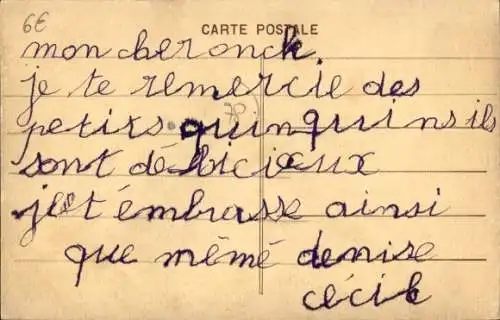 6€
CARTE POSTALE
mon cher oncle.
je te remercie des
petits quinquins ils
sont délicieux
je t'émbrasse ainsi
que mémé denise
cécile